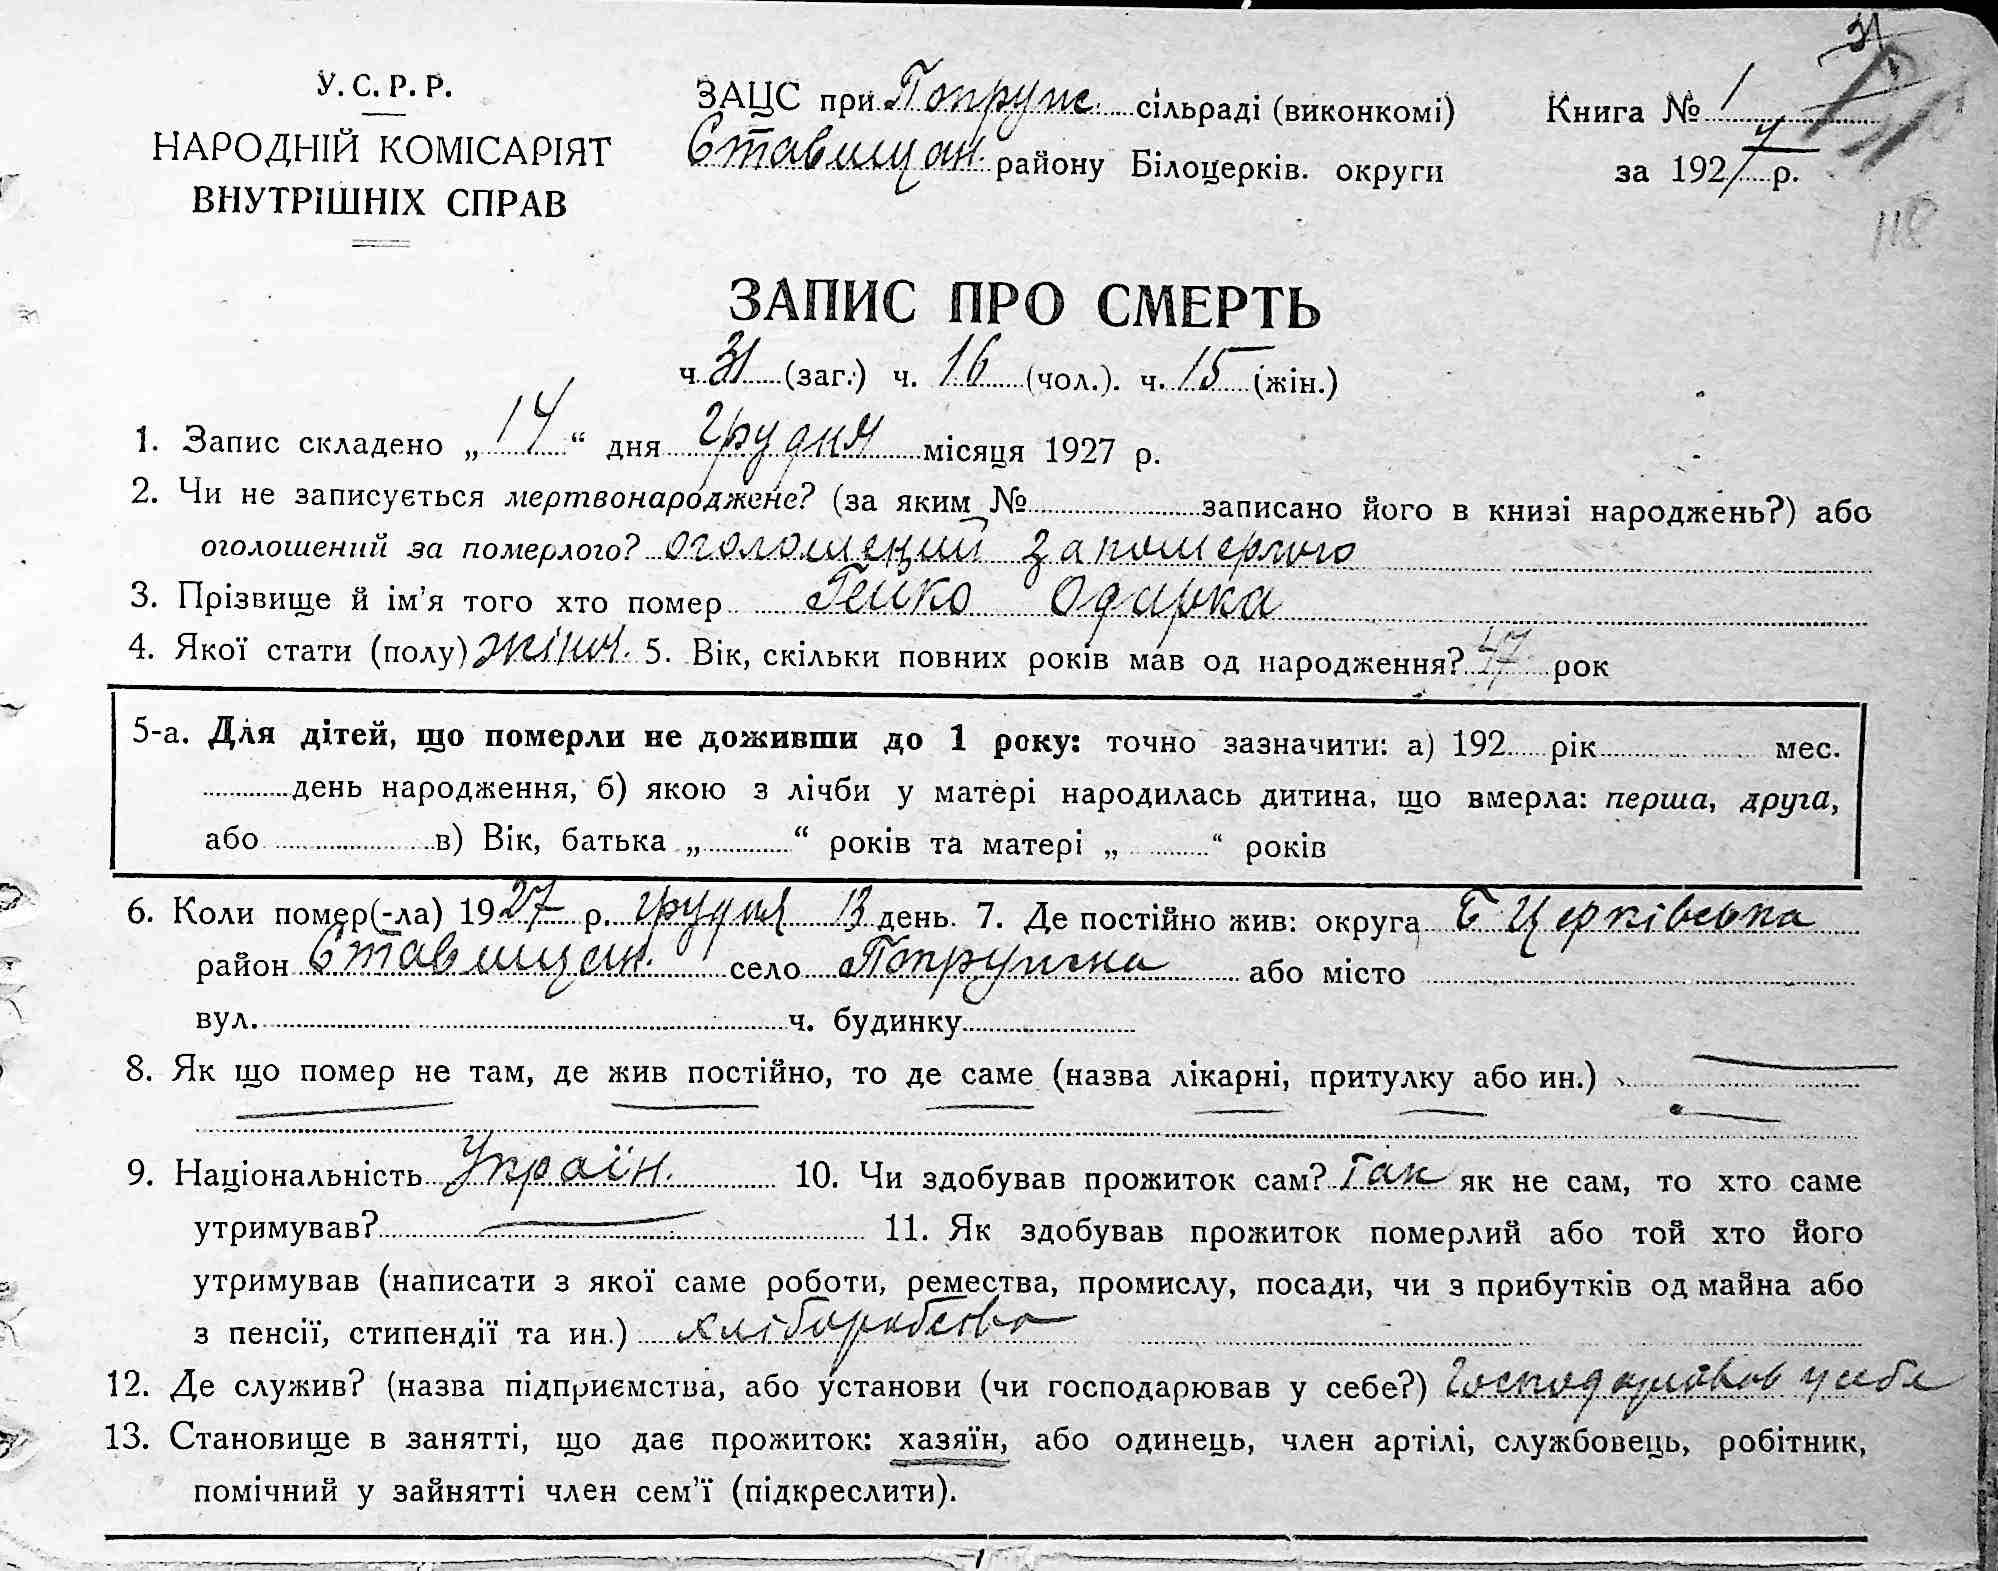 31
У. С. Р. Р.
НАРОДНІЙ КОМІСАРІЯТ
ВНУТРІШНІХ СПРАВ
ЗАЦС при Попруж. сільраді (виконкомі)
Ставищан. району Білоцерків. округи
Книга № 1
за 1927 р.
118
ЗАПИС ПРО СМЕРТЬ
ч. 31 (заг.) ч. 16 (чол.). ч. 15 (жін.)
1. Запис складено „ 14 “ дня грудня місяця 1927 р.
2. Чи не записується мертвонароджене? (за яким № записано його в книзі народжень?) або
оголошений за померлого? оголошений за померлого
3. Прізвище й ім’я того хто помер Гейко Одарка
4. Якої стати (полу) жіноч. 5. Вік, скільки повних років мав од народження? 47 рок
5-а. Для дітей, що померли не доживши до 1 року: точно зазначити: а) 192 рік мес.
день народження, б) якою з лічби у матері народилась дитина, що вмерла: перша, друга,
або в) Вік, батька „ “ років та матері „ “ років
6. Коли помер(-ла) 1927 р. грудня 13 день. 7. Де постійно жив: округа Б Церківська
район Ставищан. село Попружна або місто
вул. ч. будинку
8. Як що помер не там, де жив постійно, то де саме (назва лікарні, притулку або ин.)
9. Національність Україн. 10. Чи здобував прожиток сам? Так як не сам, то хто саме
утримував? 11. Як здобував прожиток померлий або той хто його
утримував (написати з якої саме роботи, ремества, промислу, посади, чи з прибутків од майна або
з пенсії, стипендії та ин.) хліборобство
12. Де служив? (назва підприємства, або установи (чи господарював у себе?) господарював у себе
13. Становище в занятті, що дає прожиток: хазяїн, або одинець, член артілі, службовець, робітник,
помічний у зайнятті член сем’ї (підкреслити).